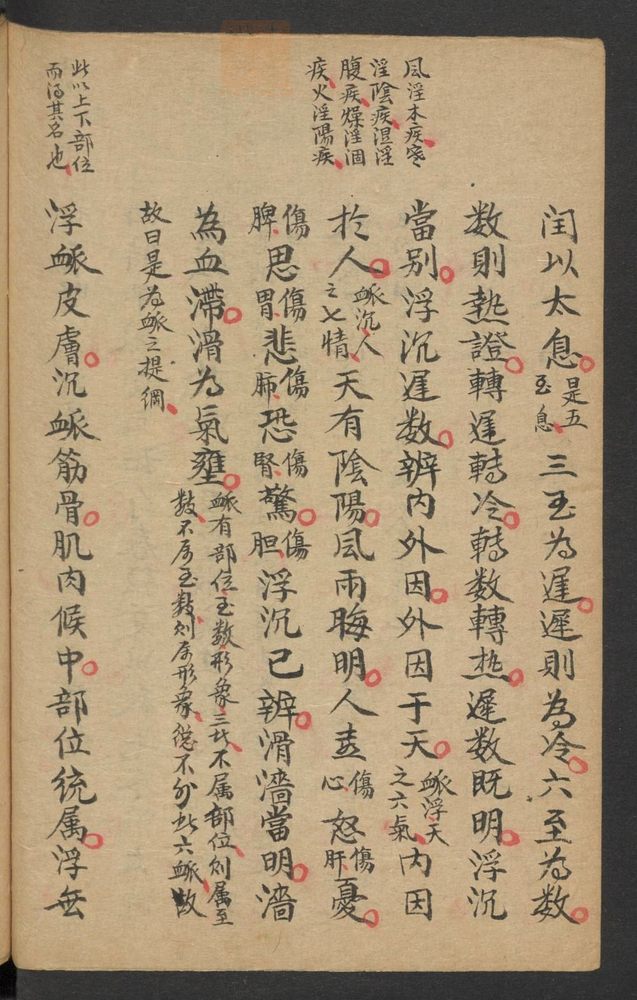 風淫末疾寒
淫陰疾濕淫
腹疾燥淫涸
疾火淫陽疾
此以上下部位
而得其名也
闰以太息是五至息三至為遲遲則為冷六至為数
数則熱證轉遲轉冷轉数轉热遲数既明浮沉
當别浮沉遲数辨内外因外因于天脈浮天之六氣内因
於人脈沉人之七情天有陰陽風雨晦明人喜傷心怒傷肝憂
傷脾思傷胃悲傷肺恐傷腎驚傷胆浮沉已辨滑濇當明濇
為血滞滑為氣壅脈有部位至数形象三者不属部位则属至
数不属至数则属形象總不外此六脈故
故曰是為脈之提綱
浮脈皮膚沉脈筋骨肌肉候中部位统属浮無